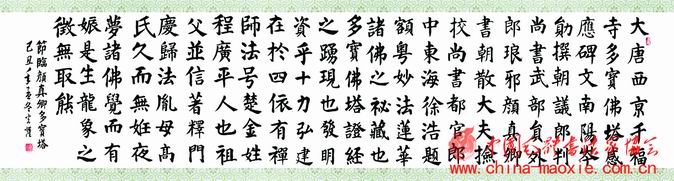 大唐西京千福
寺多寶佛塔感
應碑文南陽岑
勛撰朝議郎判
尚書武部員外
郎琅邪顏真卿
書朝散大夫撿
校尚書都官郎
中東海徐浩題
額粵妙法蓮華
諸佛之秘藏也
多寶佛塔證經
之踴現也發明
資乎十力弘建
在於四依有禪
師法号楚金姓
程廣平人也祖
父並信著釋門
慶歸法胤母高
氏久而無姙夜
夢諸佛覺而有
娠是生龍象之
徵無取熊
節臨顏真卿多寶塔
己丑年
www.china-maoxie.com.cn